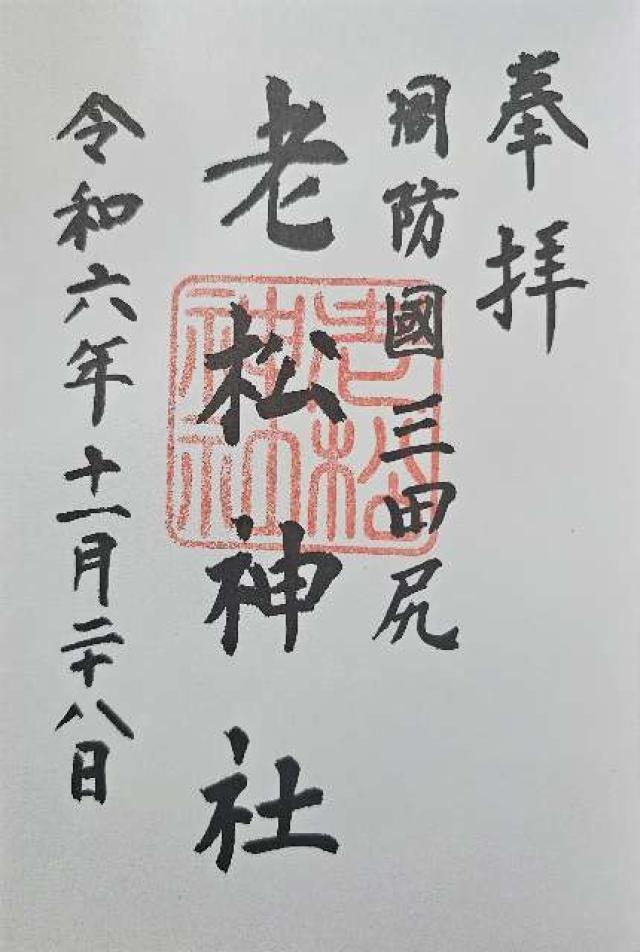 奉拝
周防國三田尻
老松神社
老松神社
令和六年十一月二十八日